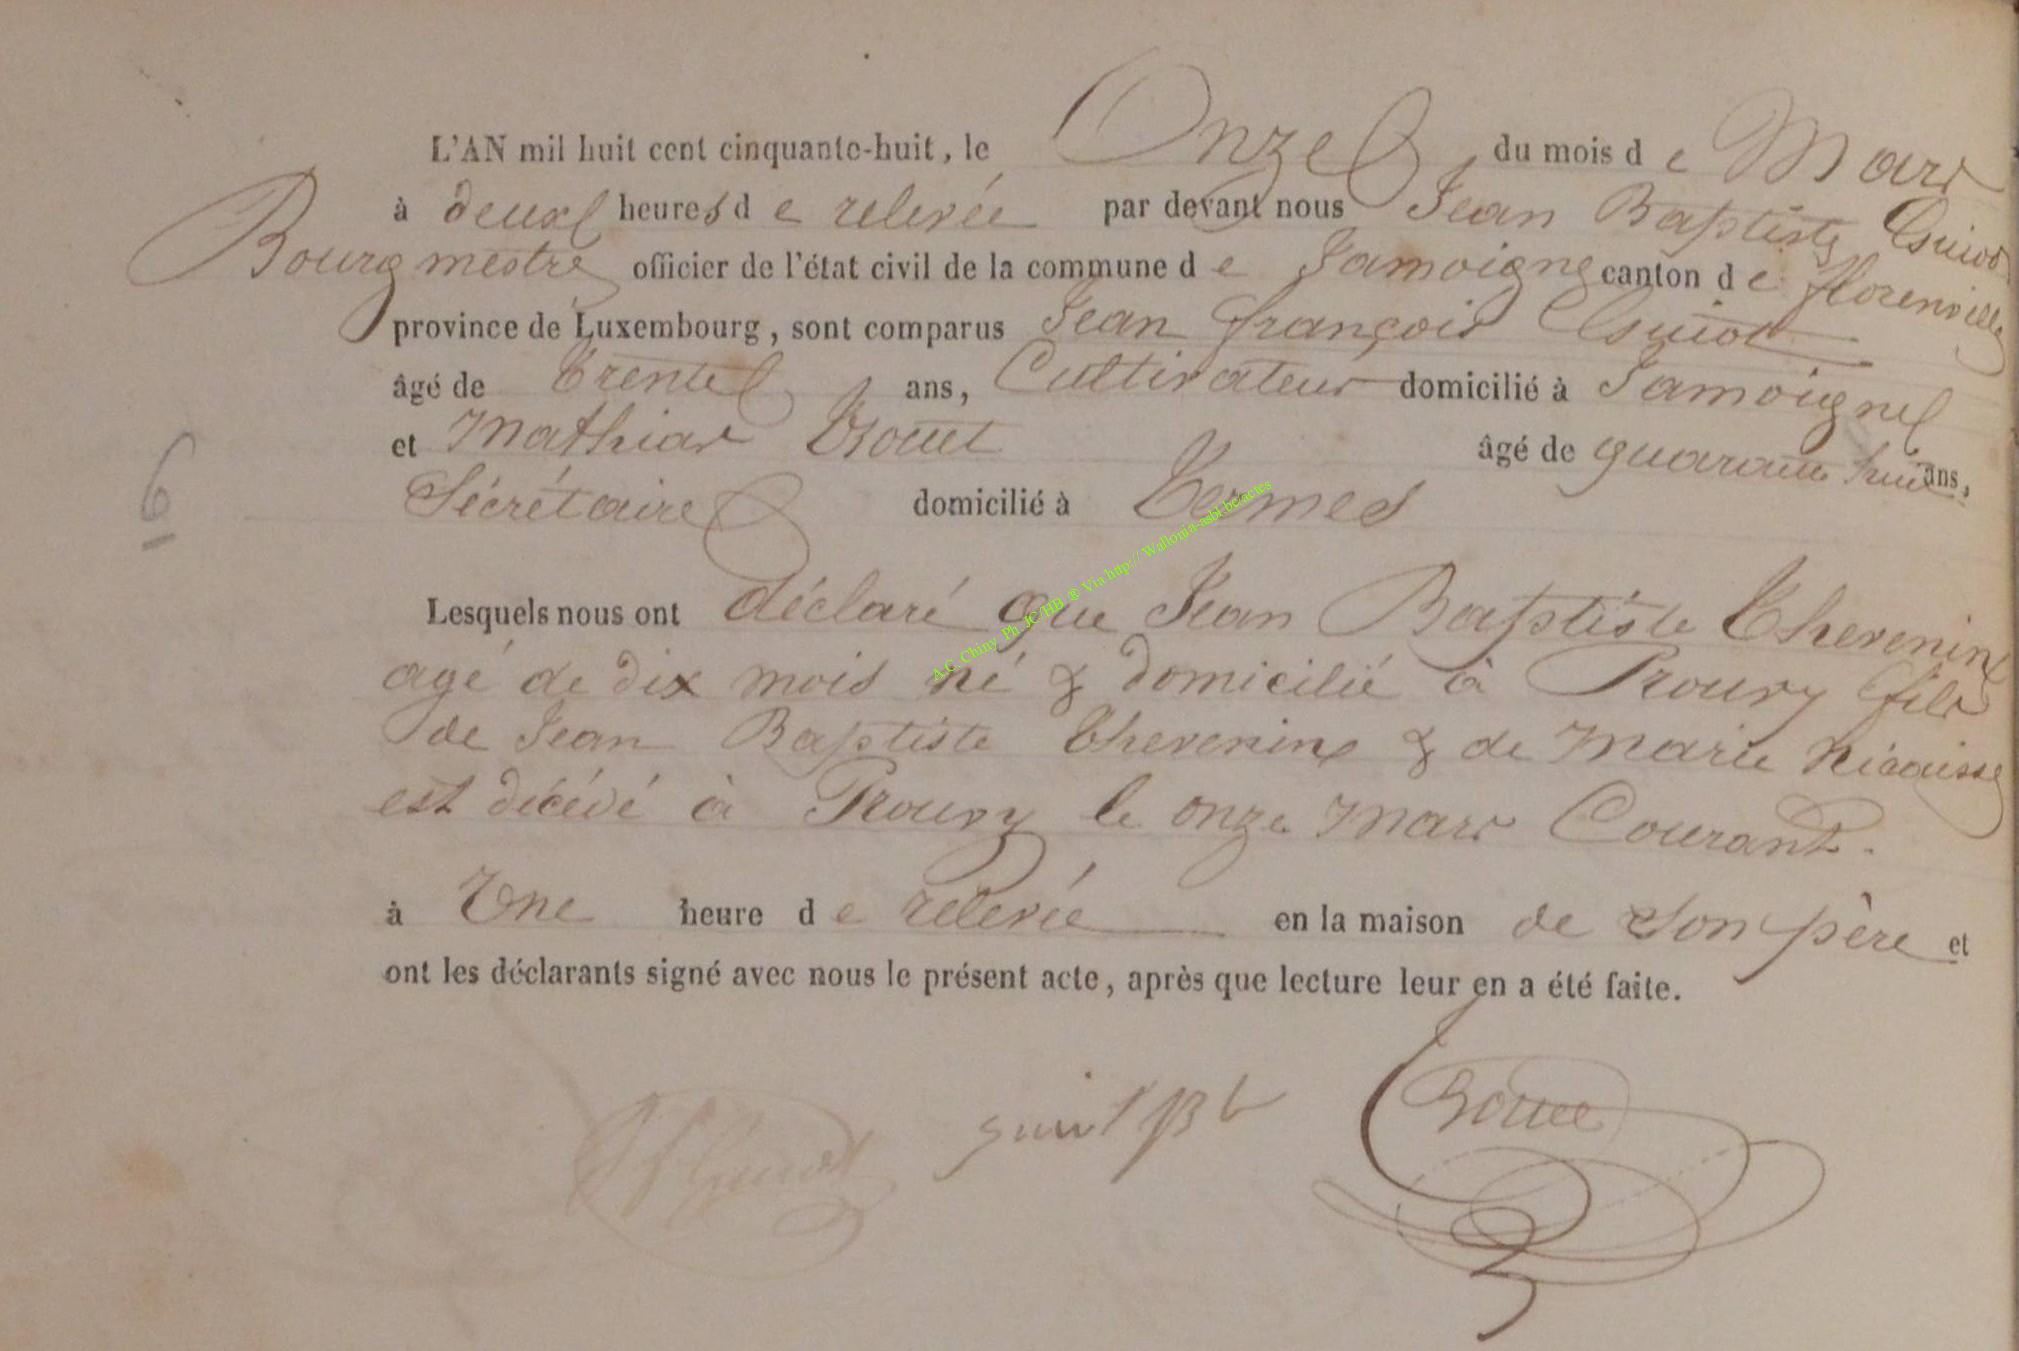 L'AN mil huit cent cinquante-huit, le Onze du mois de Mars
à deux heures de relevée par devant nous Jean Baptiste Guiot
Bourgmestre officier de l'état civil de la commune de Jamoigne canton de florenville
province de Luxembourg, sont comparus Jean françois Guiot
âgé de trente ans, Cultivateur domicilié à Jamoigne
et Mathias Bouet âgé de quarante huit ans,
6
Sécrétaire domicilié à Termes
Lesquels nous ont déclaré que Jean Baptiste Thevenin
agé de dix mois né & domicilié à Prouvy fils
de Jean Baptiste Thevenin & de Marie Nicaisse
est décédé à Prouvy le onze Mars Courant.
à Une heure de relevée en la maison de son père et
ont les déclarants signé avec nous le présent acte, après que lecture leur en a été faite.
Guiot guiot JB Bouet
A.C. Chiny Ph JC/HB ® Via http:// Wallonia-asbl.be/actes